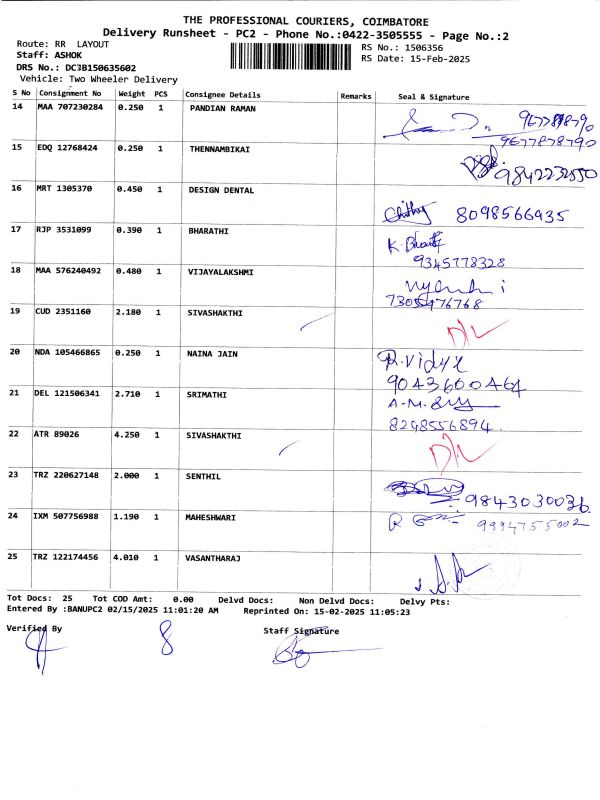 THE PROFESSIONAL COURIERS, COIMBATORE
Delivery Runsheet - PC2 - Phone No.:0422-3505555 - Page No.:2
Route: RR LAYOUT
RS No.: 1506356
Staff: ASHOK
RS Date: 15-Feb-2025
DRS No.: DC3B150635602
Vehicle: Two Wheeler Delivery
S No Consignment No Weight PCS Consignee Details Remarks Seal & Signature
14 MAA 707230284 0.250 1 PANDIAN RAMAN
9677878790
9677878790
15 EDQ 12768424 0.250 1 THENNAMBIKAI
9842232550
16 MRT 1305370 0.450 1 DESIGN DENTAL
8098566935
17 RJP 3531099 0.390 1 BHARATHI
K. Bharathi
9345778328
18 MAA 576240492 0.480 1 VIJAYALAKSHMI
7305976768
19 CUD 2351160 2.180 1 SIVASHAKTHI
D/L
20 NDA 105466865 0.250 1 NAINA JAIN
R. Vidya
9043600464
21 DEL 121506341 2.710 1 SRIMATHI
8248556894
22 ATR 89026 4.250 1 SIVASHAKTHI
D/L
23 TRZ 220627148 2.000 1 SENTHIL
9843030036
24 IXM 507756988 1.190 1 MAHESHWARI
9994755002
25 TRZ 122174456 4.010 1 VASANTHARAJ
Tot Docs: 25 Tot COD Amt: 0.00 Delvd Docs: Non Delvd Docs: Delvy Pts:
Entered By :BANUPC2 02/15/2025 11:01:20 AM Reprinted On: 15-02-2025 11:05:23
Verified By
8
Staff Signature